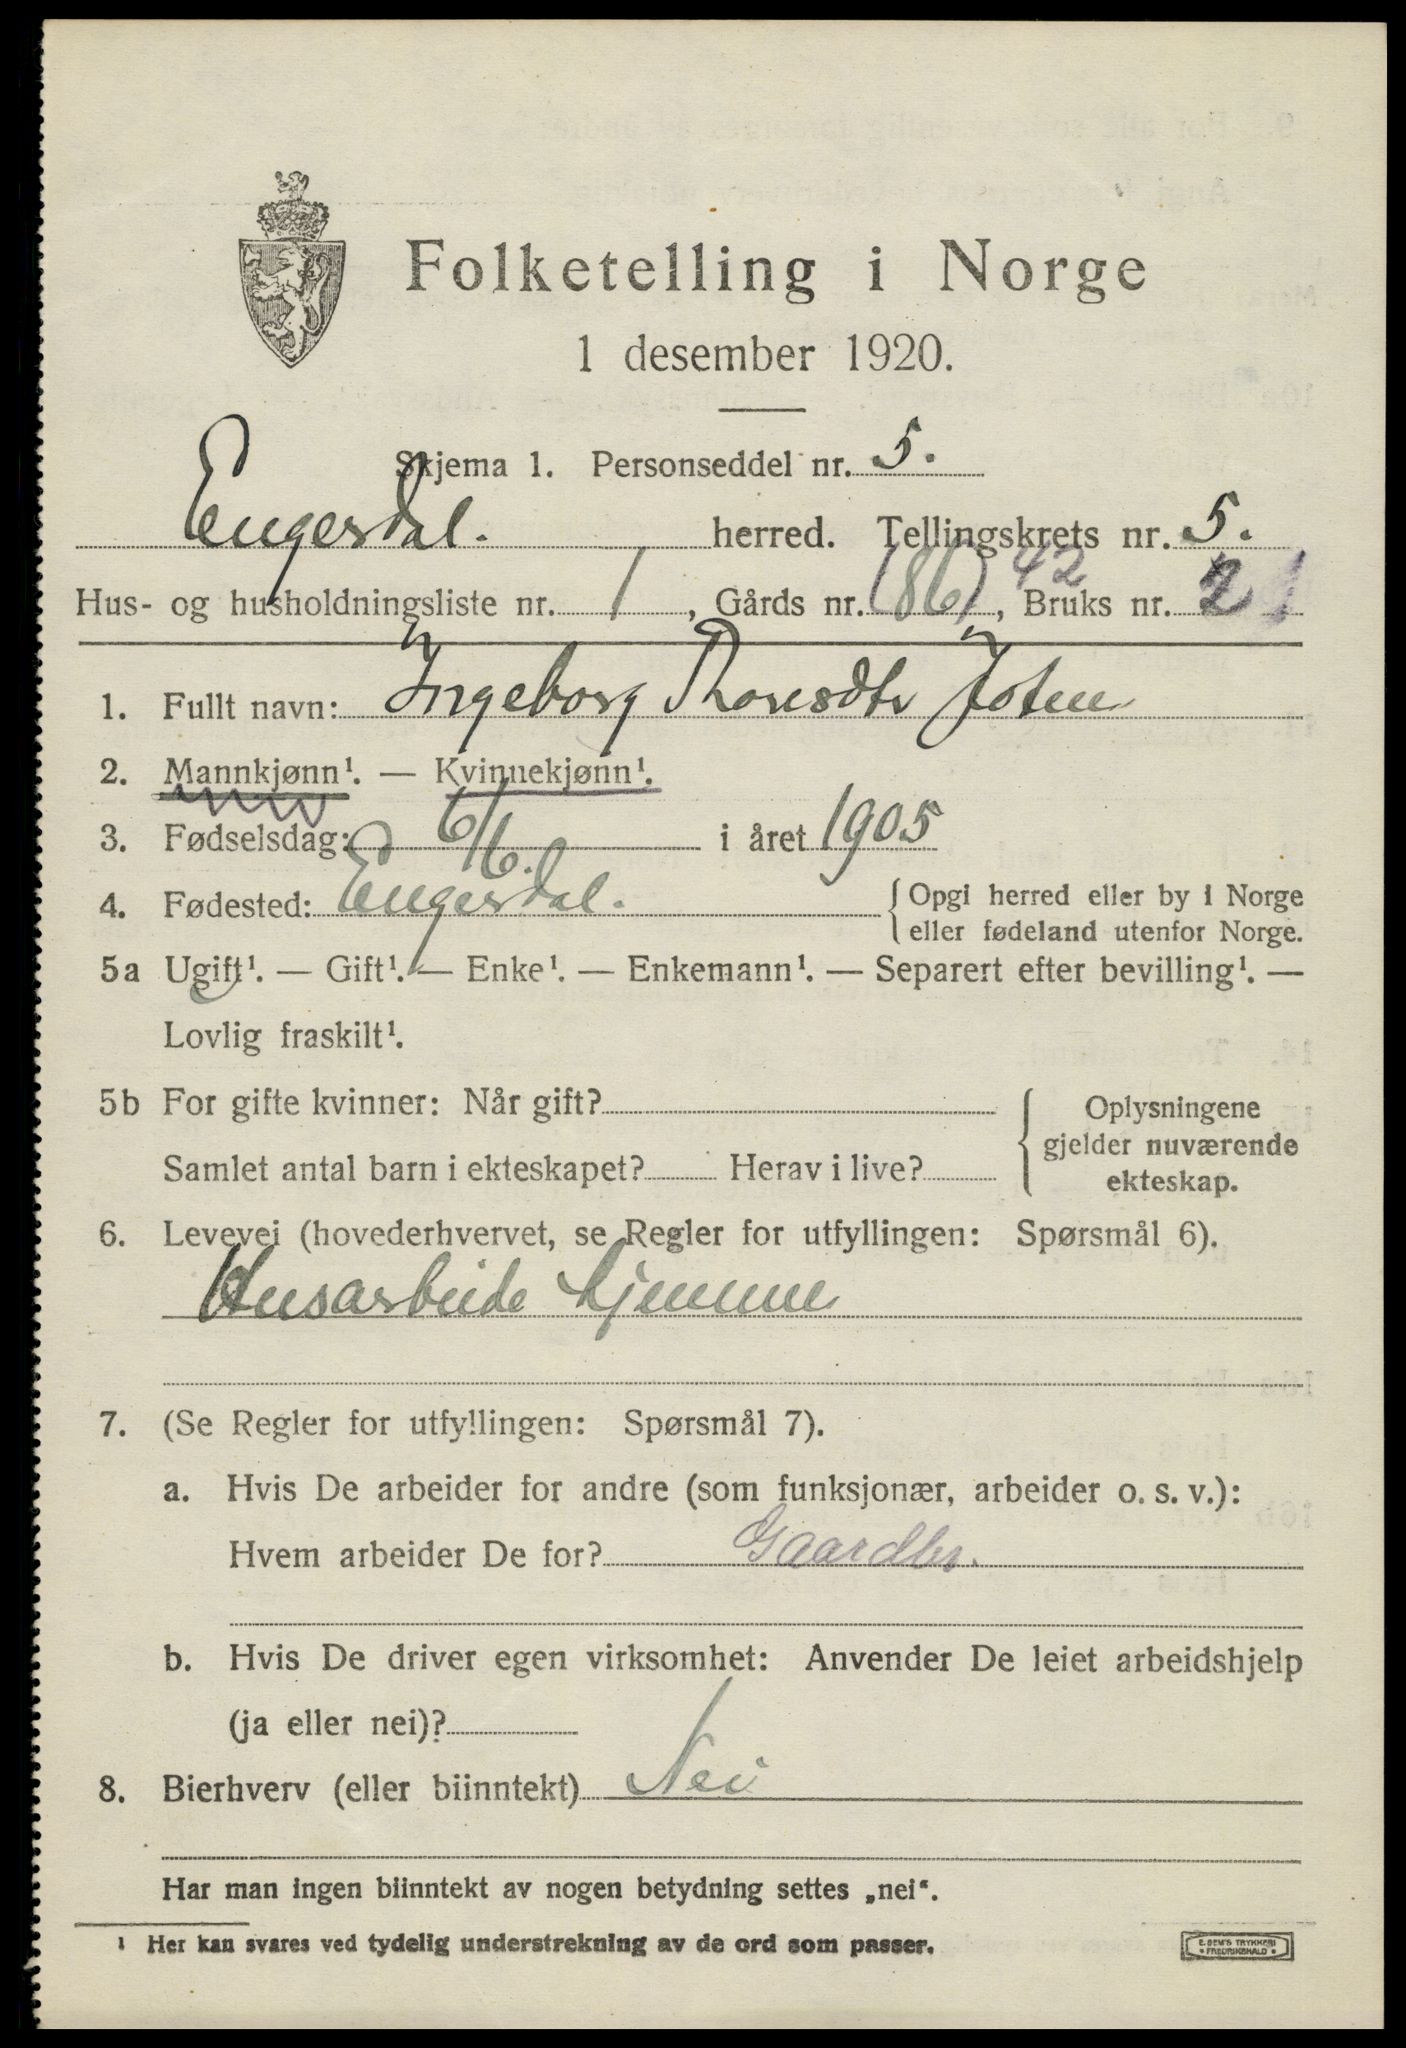 Folketelling i Norge
1 desember 1920.
Skjema 1. Personseddel nr. 5.
Engerdal. herred. Tellingskrets nr. 5.
42
Hus- og husholdningsliste nr. 1, Gårds nr. (86), Bruks nr. 2
1. Fullt navn: Ingeborg Thoresdtr Joten
2. Mannkjønn¹. — Kvinnekjønn¹.
3. Fødselsdag: 6/6. i året 1905
4. Fødested: Engerdal. { Opgi herred eller by i Norge
eller fødeland utenfor Norge.
5a Ugift¹. — Gift¹. — Enke¹. — Enkemann¹. — Separert efter bevilling¹. —
Lovlig fraskilt¹.
5b For gifte kvinner: Når gift? { Oplysningene
gjelder nuværende
Samlet antal barn i ekteskapet? Herav i live?
ekteskap.
6. Levevei (hovederhvervet, se Regler for utfyllingen: Spørsmål 6).
Husarbeide hjemme
7. (Se Regler for utfyllingen: Spørsmål 7).
a. Hvis De arbeider for andre (som funksjonær, arbeider o. s. v.):
Hvem arbeider De for? Gaardbr.
b. Hvis De driver egen virksomhet: Anvender De leiet arbeidshjelp
(ja eller nei)?
8. Bierhverv (eller biinntekt) Nei
Har man ingen biinntekt av nogen betydning settes „nei“.
¹ Her kan svares ved tydelig understrekning av de ord som passer.
E. SEM'S TRYKKERI
FREDRIKSHALD